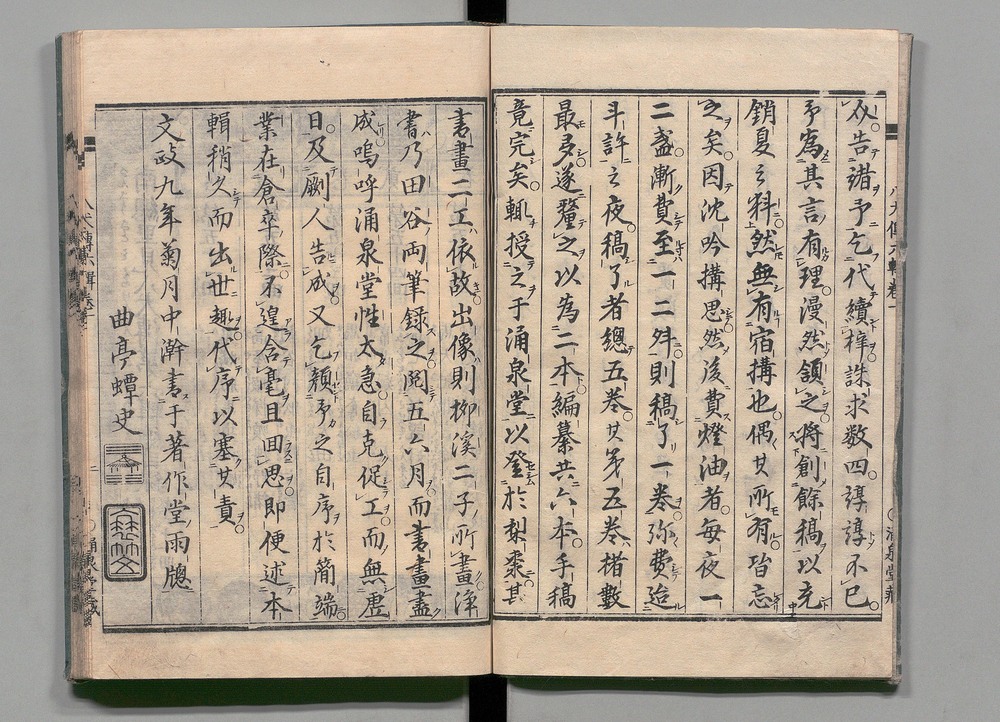 以告諸予乞代續梓誅求数四諄諄不已
予為其言有理漫然頷之将創餘稿以充
銷夏之料然無有宿搆也偶其所有皆忘
之矣因沈吟搆思然後費燈油者毎夜一
二盞漸費至一二舛則稿了一巻弥費迨
斗許之夜稿了者總五巻其第五巻楮數
最多遂釐之以為二本編纂共六本手稿
竟完矣輒授之于涌泉堂以登於梨棗其
書畫二工依故出像則柳溪二子所畫浄
書乃田谷両筆録之閲五六月而書畫盡
成嗚呼涌泉堂性太急自克促工而無虚
日及劂人告成又乞頼予之自序於簡端
業在倉卒際不遑含毫且田思即便述本
輯稍久而出世趣代序以塞其責
文政九年菊月中澣書于著作堂雨牕
曲亭蟫史